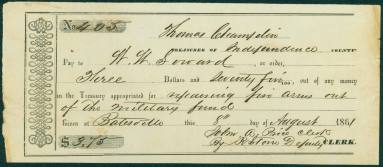 No. 405 Thomas Champlin
TREASURER OF Independence COUNTY
PAY TO W. W. Soward, or order,
Three Dollars and Seventy five/100 out of any money
in the Treasury appropriated for repairing fire arms out
of the military fund
GIVEN AT Batesville this 8" day of August 1861
John A. Price Clerk
$ 3.75 By Deputy CLERK.